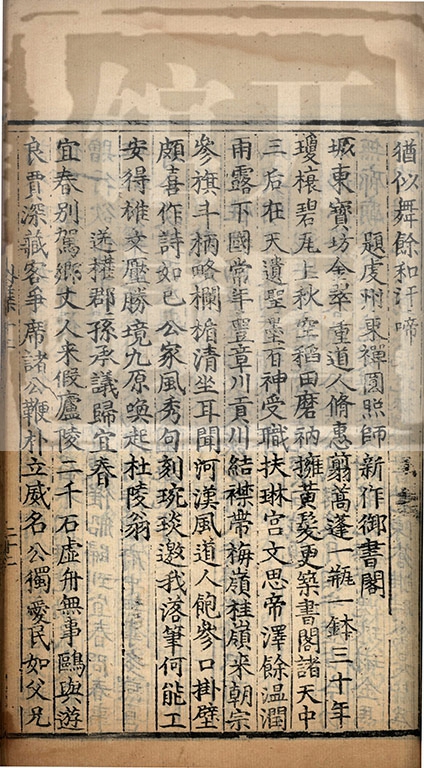 猶似舞餘和汗啼
題虔州東禪圓照師新作御書閣
城東寶坊金翠重道人脩惠翦蒿蓬一瓶一鉢三十年
瓊榱碧瓦上秋空稻田磨衲擁黃髮更築書閣諸天中
三后在天遺聖墨百神受職扶琳宮文思帝澤餘温潤
雨露下國常年豐章川貢川結襟帶梅嶺桂嶺來朝宗
參旗斗柄略欄楯清坐耳聞河漢風道人飽參口掛壁
頗喜作詩如己公家風秀句刻琬琰邀我落筆何能工
安得雄文壓勝境九原喚起杜陵翁
送權郡孫承議歸宜春
宜春別駕鄉丈人來假廬陵二千石虛舟無事鷗與遊
良賈深藏客爭席諸公鞭朴立威名公獨愛民如父兄